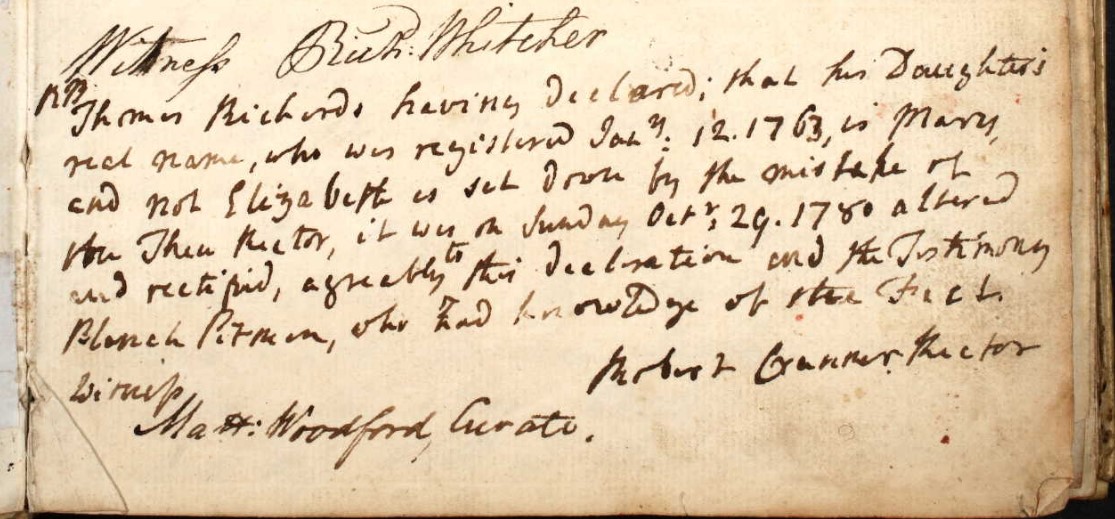 Witness Rich: Whitcher
NB Thomas Richards having Declared; that his Daughter's
real name, who was registered Jany: 12. 1763, is Mary,
and not Elizabeth as set down by the mistake of
the Then Rector, it was on Sunday Octr; 29. 1780 altered
and rectifid, agreably to this declaration and the Testimony
Blanch Pitman, who had knowledge of the Fact.
Robert Rector
Witness
Matt: Woodford, Curate.